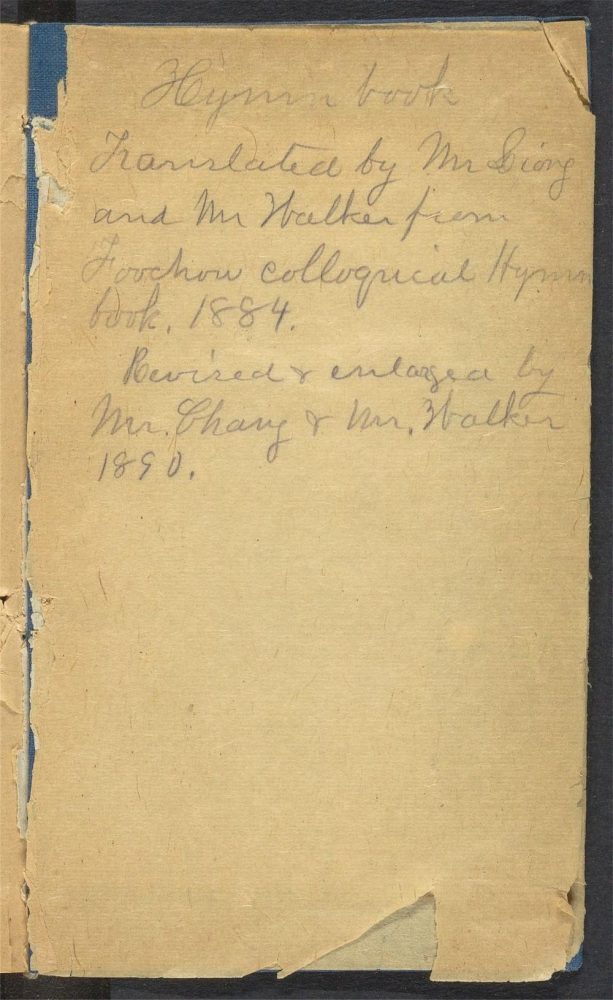 Hymn book
Translated by Mr Diong
and Mr Walker from
Foochow colloquial Hymn
book, 1884.
Revised & enlarged by
Mr. Chang & Mr. Walker
1890.